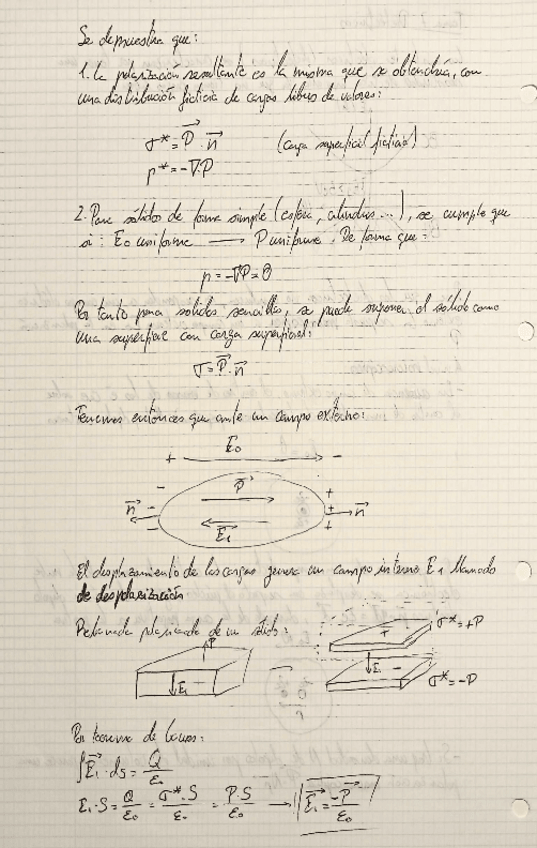 Se demuestra que:
1. La polarización resultante es la misma que se obtendría, con
una distribución ficticia de cargas libres de valores:
σ* = P⃗ · n⃗ (carga superficial ficticia)
ρ* = -∇·P
2. Para sólidos de forma simple (esfera, cilindros...), se cumple que
si: E₀ uniforme → P uniforme. De forma que:
ρ = -∇P = 0
Por tanto para solidos sencillos, se puede suponer el sólido como
una superficie con carga superficial:
σ = P⃗ · n⃗
Tenemos entonces que ante un campo externo:
E⃗₀
+ → -
- P⃗ +
n⃗ - + n⃗
- E⃗₁ +
El desplazamiento de las cargas genera un campo interno E₁ llamado
de despolarización
Rebanada polarizada de un sólido:
P σ* = +P
E₁ E₁
σ* = -P
Por teorema de Gauss:
∫E⃗₁ · ds = Q/ε₀
E₁ · S = Q/ε₀ = σ* · S/ε₀ = P · S/ε₀ → E⃗₁ = -P⃗/ε₀